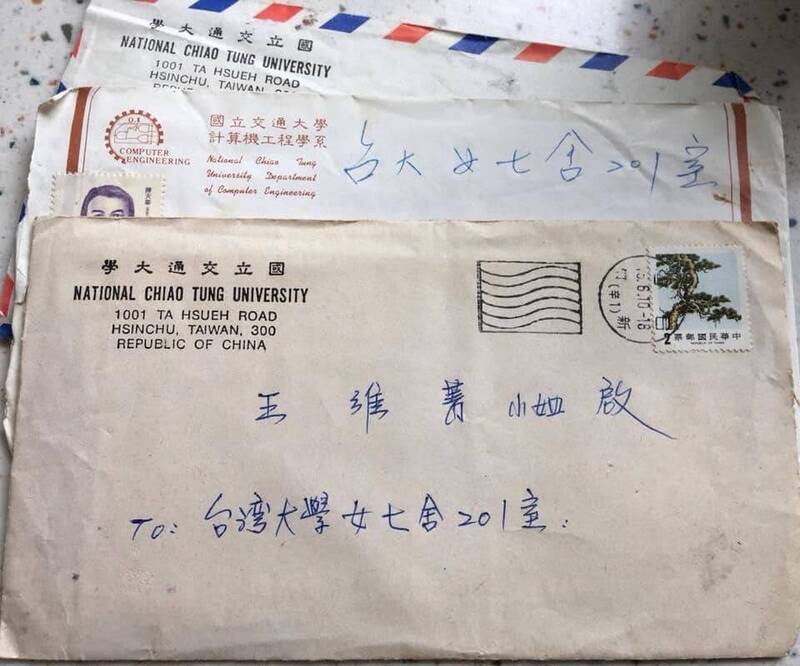 國立交通大學
NATIONAL CHIAO TUNG UNIVERSITY
1001 TA HSUEH ROAD
HSINCHU, TAIWAN, 300
COMPUTER
ENGINEERING
國立交通大學
計算機工程學系
National Chiao Tung
University Department
of Computer Engineering
台大女七舍201室
陳天華
國立交通大學
NATIONAL CHIAO TUNG UNIVERSITY
1001 TA HSUEH ROAD
HSINCHU, TAIWAN, 300
REPUBLIC OF CHINA
6.10-18
2
中華民國郵票
REPUBLIC OF CHINA
王維菁小姐啟
TO: 台湾大學女七舍201室.